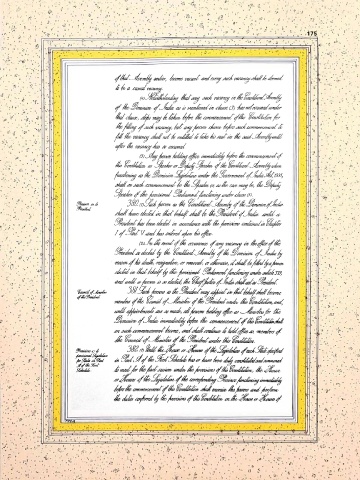 175
of that Assembly under, become vacant and every such vacancy shall be deemed
to be a casual vacancy.
(4) Notwithstanding that any such vacancy in the Constituent Assembly
of the Dominion of India as is mentioned in clause (3) has not occurred under
that clause, steps may be taken before the commencement of this Constitution for
the filling of such vacancy, but any person chosen before such commencement to
fill the vacancy shall not be entitled to take his seat in the said Assembly until
after the vacancy has so occurred.
(5) Any person holding office immediately before the commencement of
this Constitution as Speaker or Deputy Speaker of the Constituent Assembly when
functioning as the Dominion Legislature under the Government of India Act, 1935,
shall on such commencement be the Speaker or, as the case may be, the Deputy
Speaker of the provisional Parliament functioning under clause (1).
Provision as to
President
380. (1) Such person as the Constituent Assembly of the Dominion of India
shall have elected in that behalf shall be the President of India until a
President has been elected in accordance with the provisions contained in Chapter
I of Part V and has entered upon his office.
(2) In the event of the occurrence of any vacancy in the office of the
President so elected by the Constituent Assembly of the Dominion of India by
reason of his death, resignation, or removal, or otherwise, it shall be filled by a person
elected in that behalf by the provisional Parliament functioning under article 379,
and until a person is so elected, the Chief Justice of India shall act as President.
Council of Ministers
of the President
381. Such persons as the President may appoint in that behalf shall become
members of the Council of Ministers of the President under this Constitution, and,
until appointments are so made, all persons holding office as Ministers for the
Dominion of India immediately before the commencement of this Constitution shall
on such commencement become, and shall continue to hold office as, members of
the Council of Ministers of the President under this Constitution.
Provisions as to
provisional Legislatures
for States in Part
A of the First
Schedule
382. (1) Until the House or Houses of the Legislature of each State specified
in Part A of the First Schedule has or have been duly constituted and summoned
to meet for the first session under the provisions of this Constitution, the House
or Houses of the Legislature of the corresponding Province functioning immediately
before the commencement of this Constitution shall exercise the powers and perform
the duties conferred by the provisions of this Constitution on the House or Houses of